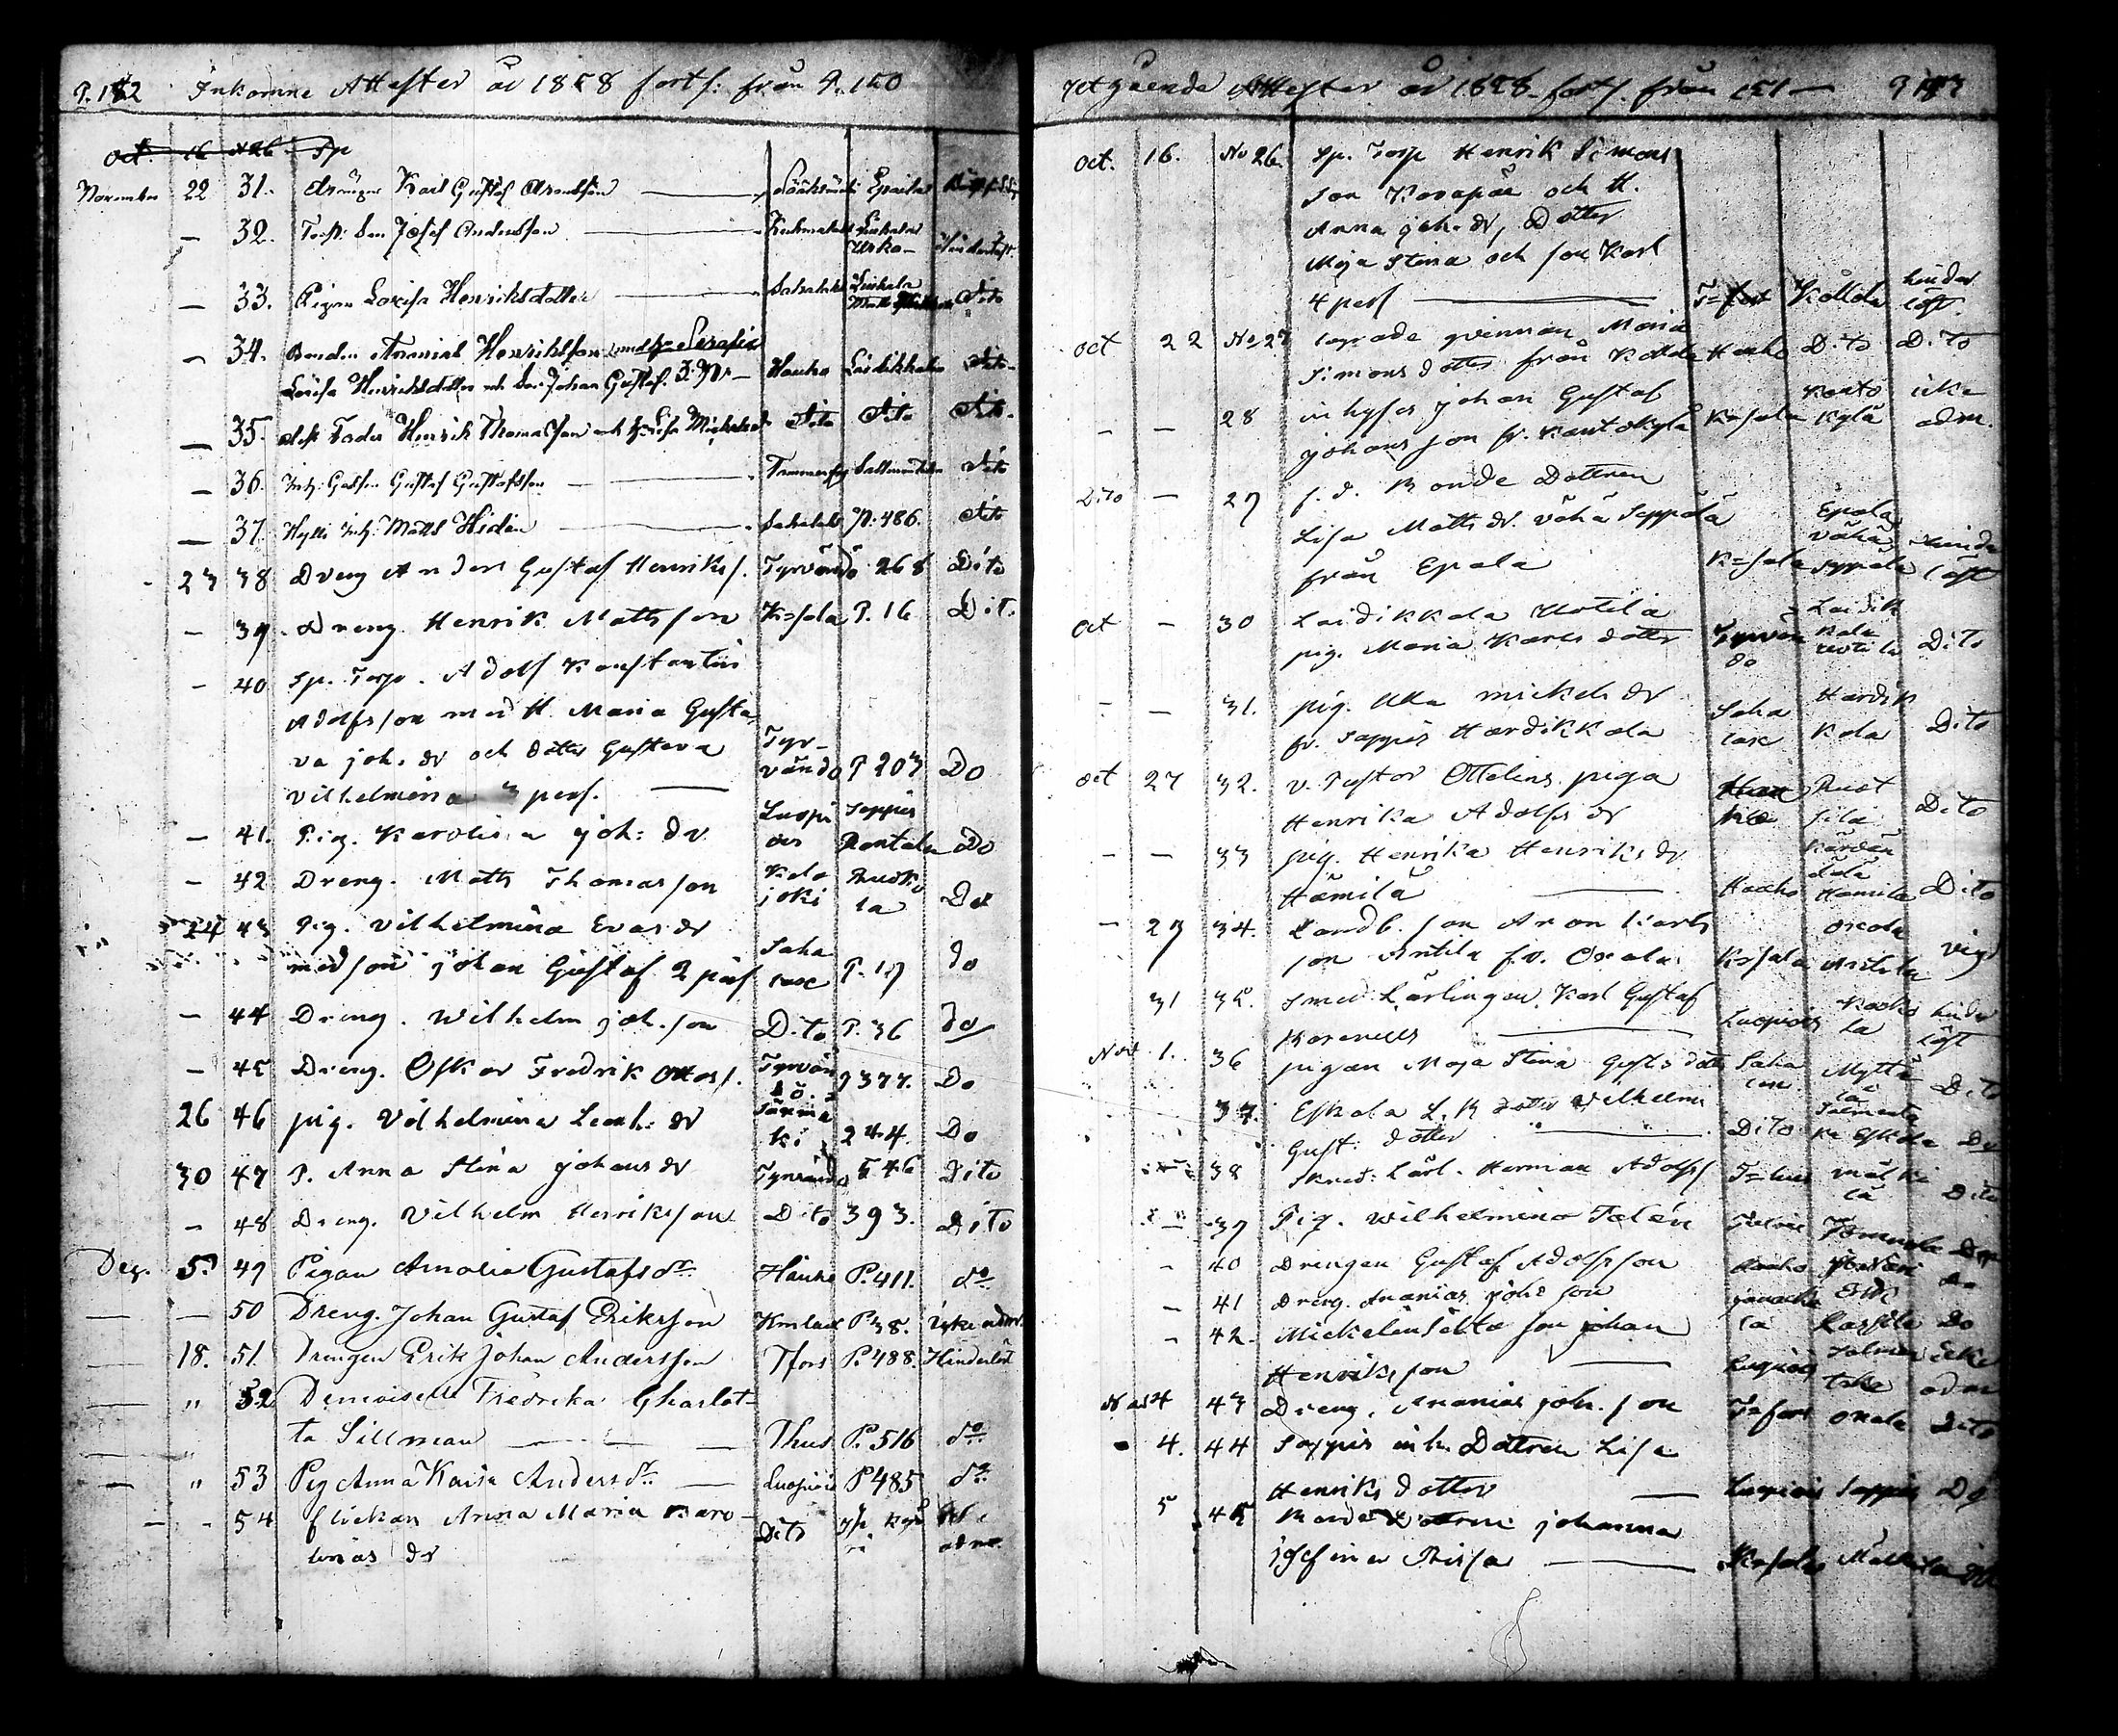 P. 152 Inkomne Attester år 1858 forts: från P. 150
Oct. 16 N26 Sp
November 22 31. drängen Karl Gustaf Aronsson Sääksmäki Epaila
— 32. Torp: Son Josef Andersson Kuhmalaks Hinderlöst
— 33. Pigan Lovisa Henriksdotter Sahalaks Dito
— 34. Bonden Ananias Henriksson med h: Serafia
Lovisa Henriksdotter och Son Johan Gustaf. 3. P:r Hauho Laidikkala Dito
— 35. dess Fader Henrik Thomasson och h: Lisa Michelsd Dito Dito Dito
— 36. Inh: Gossen Gustaf Gustafsson Tammerfors Dito
— 37. Hylli Inh: Matts Hidén Sahalaks P: 486. Dito
23 38 Dreng Anders Gustaf Henriks. Tyrvändö 268 Dito
— 39. Dreng Henrik Mattsson K=sala P. 16 Dito
— 40 Sp. Torp. Adolf Konstantin
Adolfsson med H. Maria Gusta
va joh. dr och dotter Gustava Tyr-
vilhelmina 3 pers. vändö P 203 Do
— 41. Pig. Karolina joh: dr. Luopi ois Seppis Rontola Do
— 42 Dreng. Matts Thomasson Kala joki Ruoko la Do
24 43 Pig. Vilhelmina Evas dr
med son johan Gustaf 2 pers Saha lax P. 19 do
— 44 Dreng. Wilhelm joh. son Dito P. 36 do
— 45 Dreng. Oskar Fredrik Ottos. Tyrvän dö. P 377. Do
26 46 pig. Vilhelmina Leonh: dr Särmä ki 244 Do
30 47 P. Anna Stina johans dr Tyrvändö 546 Dito
— 48 Dreng. Vilhelm Henriksson Dito 393. Dito
Dez. 5. 49 Pigan Amalia Gustafsdr. Hauho P. 411. do
— — 50 Dreng. Johan Gustaf Eriksson Kmlax P. 38. icke adm.
— 18. 51. Drengen Erik Johan Andersson Tfors P. 488. Hinderlöst
— " 52 Demoiselle Fredrika Charlot-
ta Sillman — Thus P. 516 do
— " 53 Pig Anna Kaisa Anders dr. — Luopiois P 485 do
— - 54 flickan Anna Maria Karo-
linas dr Dito
Utgående Attester år 1858 forts. från 151 — P 153
Oct. 16. No 26. Sp. Torp Henrik Simons
son Korapää och H.
Anna joh. dr, Dotter
Maja Stina och son Karl
4 pers — T=fors Kottola hinder löst.
Oct 22 No 27 lagade qvinnan Maria
Simons dotter från Kottola Hauho Dito Dito
— — 28 inhyses johan Gustaf
johansson fr. Kantokylä K=sala Kanto kylä icke adm.
Dito — 29 f. d. Bonde Dottren
Lisa Matts dr. Vähä Seppälä
från Epala K=sala Epala vähä seppälä hinder löst
Oct — 30 Laidikkala Uotila
pig. Maria Karls dotter Tyrvän dö Laidik kala uotila Dito
— — 31. pig. Ulla mickels dr
fr. Seppis Hardikkala Saha lax Hardik kala Dito
Oct 27 32. v. Pastor Ottelins piga
Henrika Adolfs dr Ruot sila Dito
— — 33 pig. Henrika Henriks dr
Hämilä — Hauho Hämilä Dito
— 29 34. Landb. son Aron Karls
son Antila fr. Onola K=sala Onola Antila vigd
31 35. Smed: Lärlingen Karl Gustaf
Korenius — Luopiois hinder löst
Nov 1. 36 pigan Maja Stina Gusts dotter Saha lax Myttä lä Dito
37. Eskola L. B dotter Vilhelm
Gust: dotter — Dito Salmenta ka Eskola Do
38 Skred: Lärl. Herman Adolfs T=hus mälki lä Dito
— 39 Pig. Wilhelmina Talén
— 40 Drengen Gustaf Adolfsson Hauho Do
— 41 Dreng. Ananias johs son janakka la Do
— 42. Mickelin Silta son johan
Henriksson — Luopiois icke adm
Nov 4 43 Dreng. Ananias joh. son T=fors Onola Dito
4. 44 Seppis inh. Dottren Lisa
Henriks dotter — Luopiois Seppis Do
5 45 Bonde Dottren johanna
josefina Rissa — K=sala